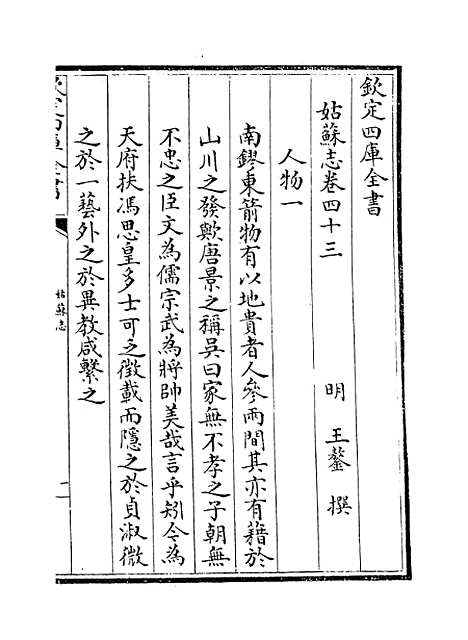 欽定四庫全書
姑蘇志卷四十三
明 王鏊 撰
人物一
南鏐東箭物有以地貴者人參兩間其亦有藉於
山川之發歟唐景之稱吳曰家無不孝之子朝無
不忠之臣文為儒宗武為將帥美哉言乎矧令為
天府扶馮思皇多士可乏徴載而隱之於貞淑微
之於一藝外之於異教咸繫之
欽定四庫全書
姑蘇志
一